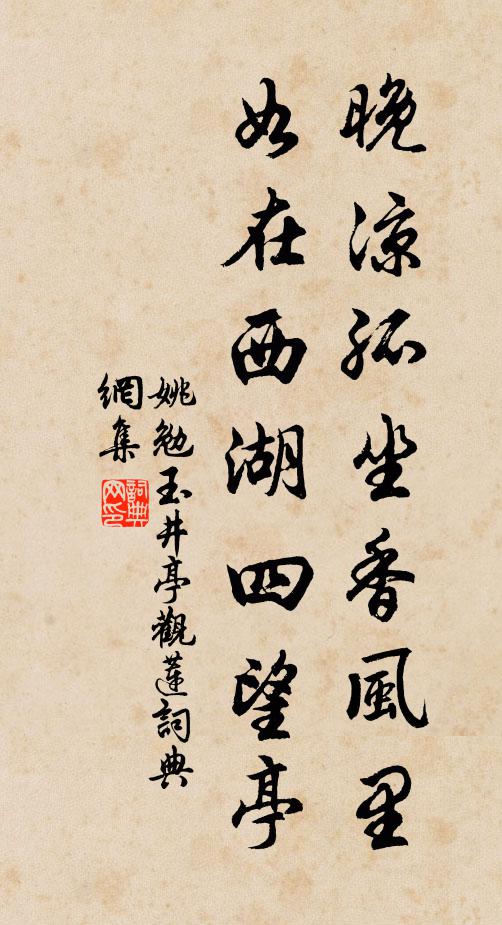 晚凉孤坐香風里
如在西湖四望亭
姚勉玉井亭觀蓮詞典
網集
詞典
網印